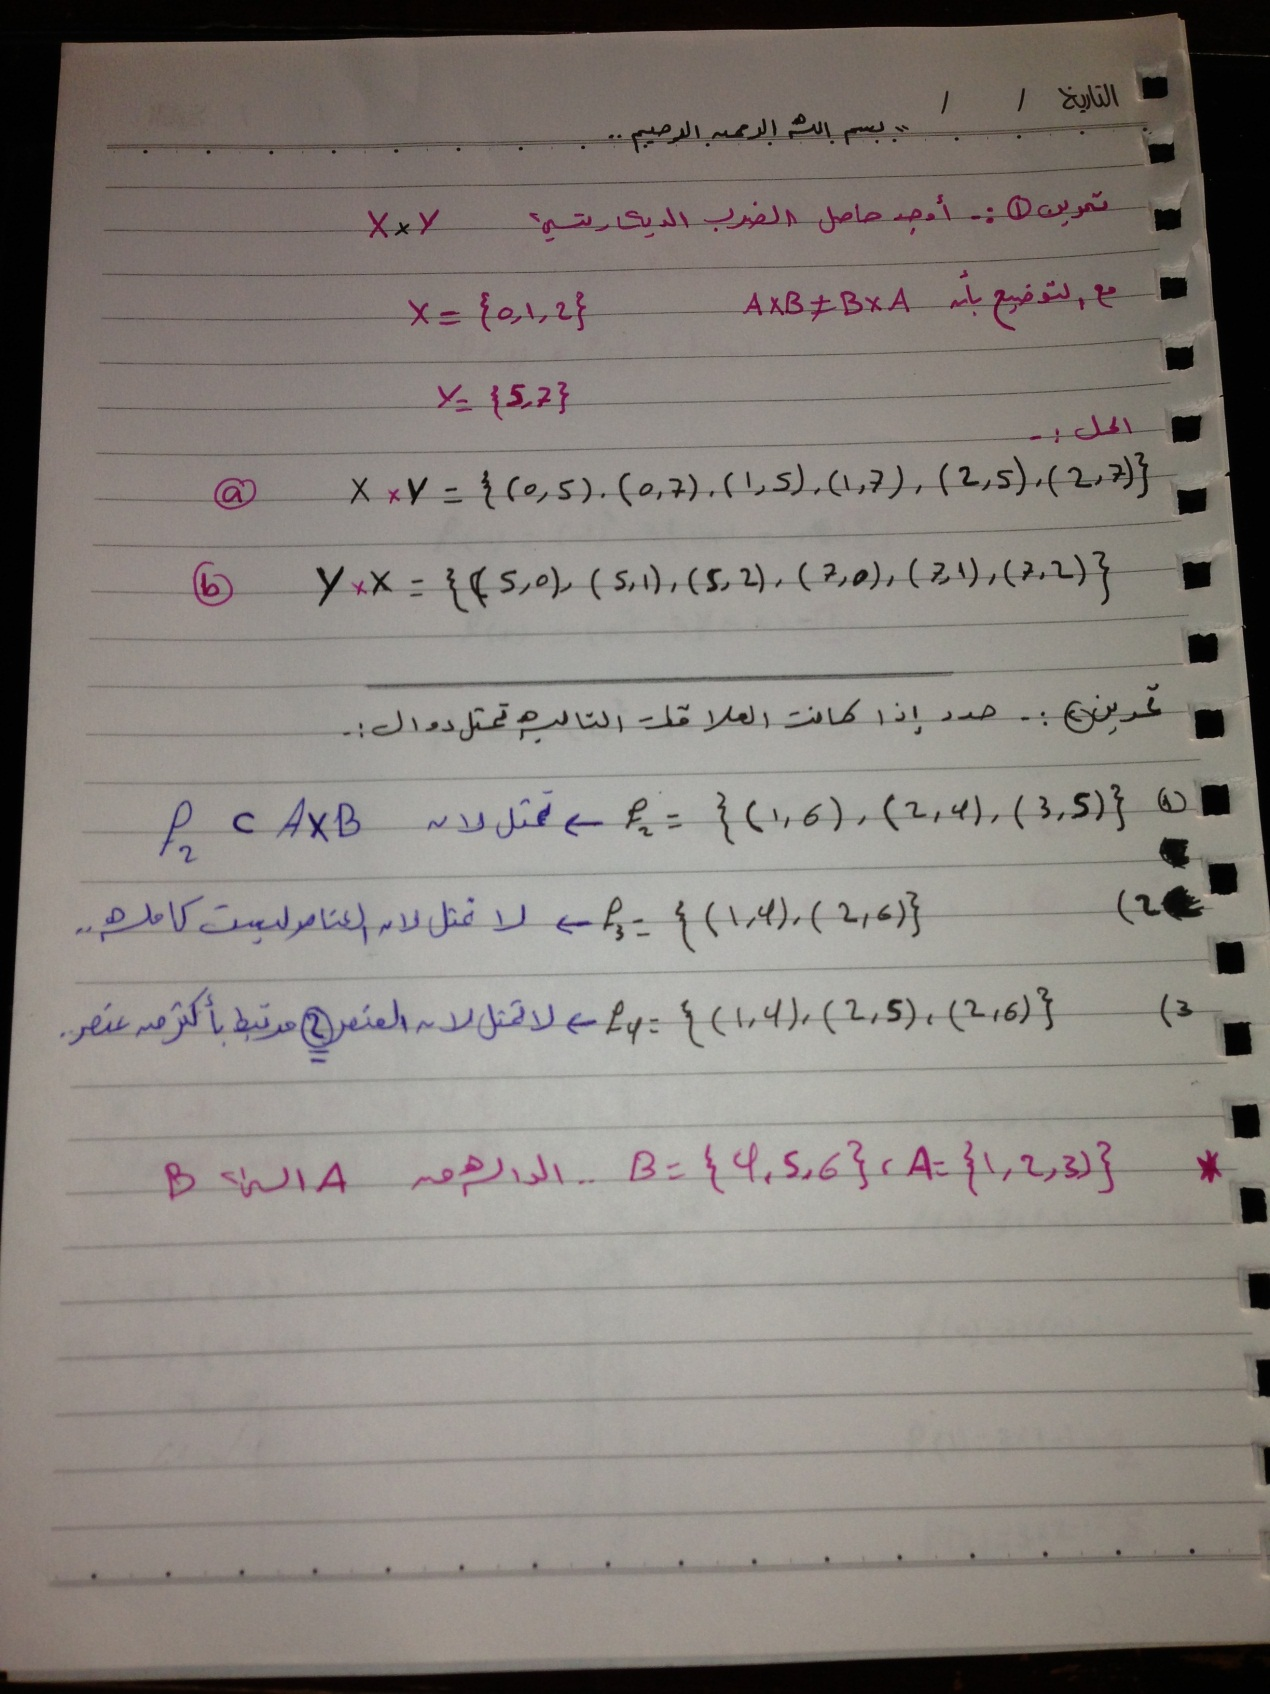 التاريخ / /
.. بسم الله الرحمن الرحيم ..
تمرين ① :- أوجد حاصل الضرب الديكارتسي X × Y
مع التوضيح بأن A×B ≠ B×A X = {0,1,2}
Y = {5,7}
الحل :-
ⓐ X × Y = {(0,5), (0,7), (1,5), (1,7), (2,5), (2,7)}
ⓑ Y × X = {(5,0), (5,1), (5,2), (7,0), (7,1), (7,2)}
تمرين ② :- حدد إذا كانت العلاقات التاليه تمثل دوال :-
① f₂ = {(1,6), (2,4), (3,5)} ← تمثل لان f₂ ⊂ A×B
2) f₃ = {(1,4), (2,6)} ← لا تمثل لان العناصر ليست كامله ..
3) f₄ = {(1,4), (2,5), (2,6)} ← لا تمثل لان العنصر ② مرتبط بأكثر من عنصر ..
* A = {1,2,3)} ، B = {4,5,6} .. الداله من A الى B